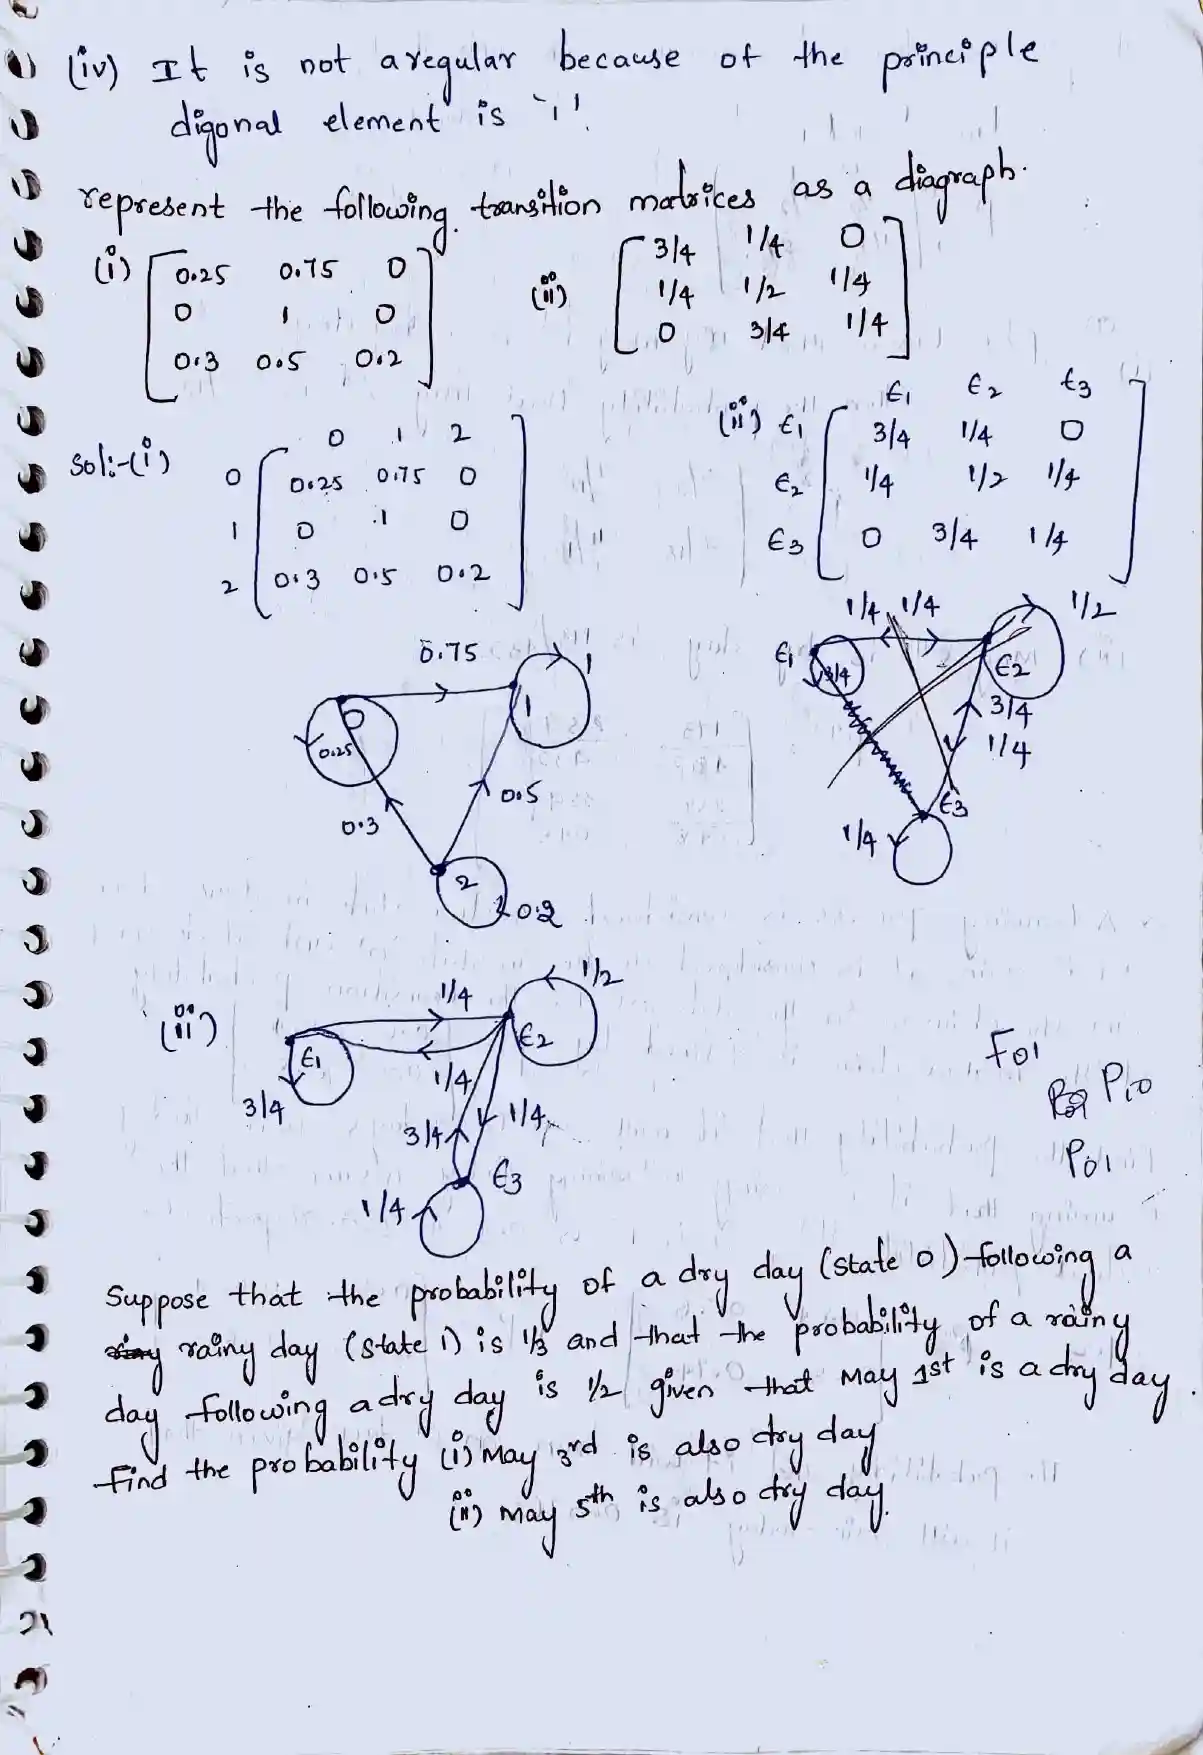 (iv) It is not a regular because of the principle
digonal element is '1'.
represent the following transition matrices as a diagraph.
(i) [ 0.25 0.75 0
0 1 0
0.3 0.5 0.2 ]
(ii) [ 3/4 1/4 0
1/4 1/2 1/4
0 3/4 1/4 ]
Sol:-(i)
0 1 2
0 [ 0.25 0.75 0
1 0 .1 0
2 0.3 0.5 0.2 ]
(ii)
ϵ1 ϵ2 ϵ3
ϵ1 [ 3/4 1/4 0
ϵ2 1/4 1/2 1/4
ϵ3 0 3/4 1/4 ]
0.75
1
0
1
0.25
0.5
0.3
2
0.2
1/4 1/4
1/2
ϵ1
3/4
ϵ2
3/4
1/4
ϵ3
1/4
(ii)
1/4
1/2
ϵ1
ϵ2
3/4
1/4
3/4
1/4
ϵ3
1/4
F01
P10
P01
Suppose that the probability of a dry day (state 0) following a
rainy day (state 1) is 1/3 and that the probability of a rainy
day following a dry day is 1/2 given that May 1st is a dry day.
find the probability (i) May 3rd is also dry day
(ii) may 5th is also dry day.